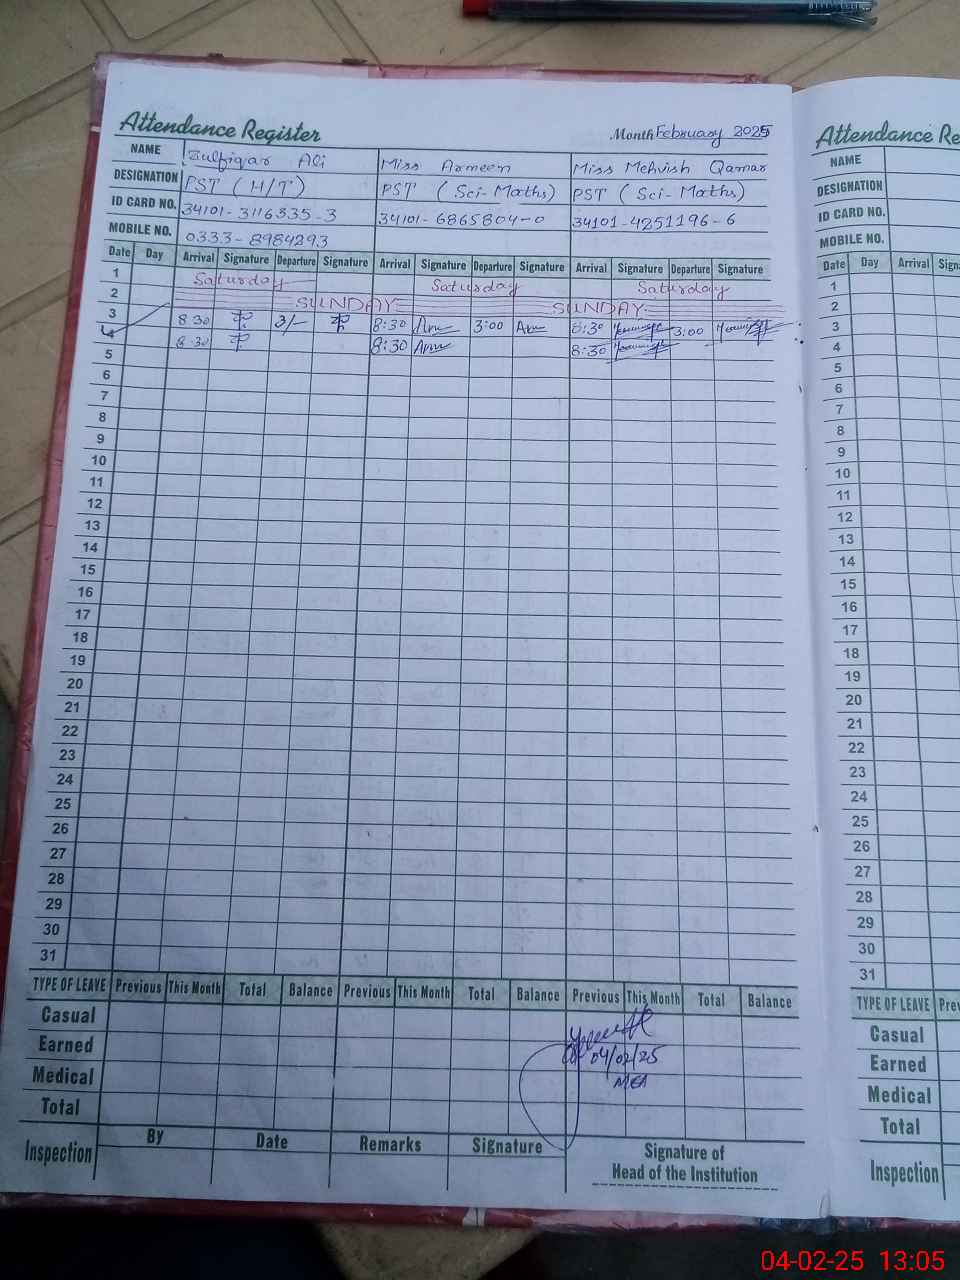 Attendance Register Month February 2025
NAME Zulfiqar Ali Miss Armeen Miss Mehvish Qamar
DESIGNATION PST (H/T) PST (Sci-Maths) PST (Sci-Maths)
ID CARD NO. 34101-3116335-3 34101-6865804-0 34101-4251196-6
MOBILE NO. 0333-8984293
Date Day Arrival Signature Departure Signature Arrival Signature Departure Signature Arrival Signature Departure Signature
1 Saturday Saturday Saturday
2 SUNDAY SUNDAY
3 8 30 3/- 8:30 3:00 8:30 3:00
4 8 30 8:30 8:30
5
6
7
8
9
10
11
12
13
14
15
16
17
18
19
20
21
22
23
24
25
26
27
28
29
30
31
TYPE OF LEAVE Previous This Month Total Balance Previous This Month Total Balance Previous This Month Total Balance
Casual
Earned 04/02/25
Medical MEA
Total
Inspection By Date Remarks Signature Signature of
Head of the Institution
Attendance Re
NAME
DESIGNATION
ID CARD NO.
MOBILE NO.
Date Day Arrival Sign
1
2
3
4
5
6
7
8
9
10
11
12
13
14
15
16
17
18
19
20
21
22
23
24
25
26
27
28
29
30
31
TYPE OF LEAVE Prev
Casual
Earned
Medical
Total
Inspection
04-02-25 13:05